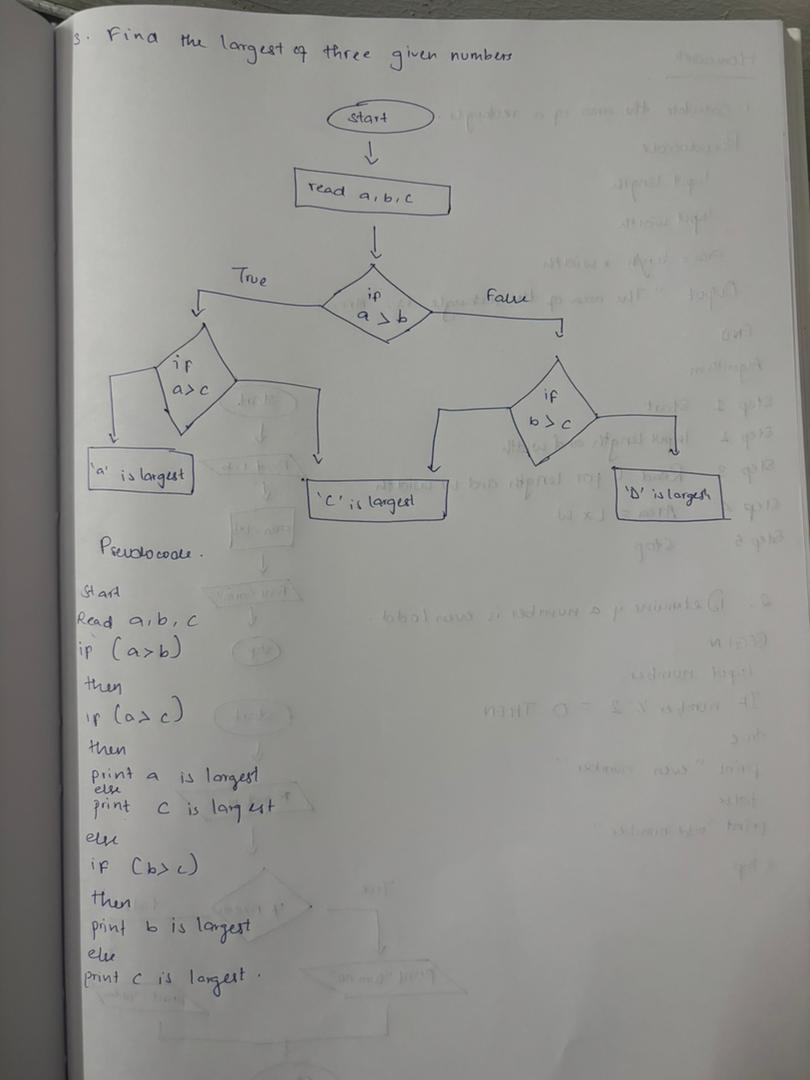 3. Find the largest of three given numbers
start
read a, b, c
True
if
a > b
False
if
a > c
if
b > c
'a' is largest
'C' is largest
'D' is largest
Pseudocode.
Start
Read a, b, c
if (a>b)
then
if (a> c)
then
print a is largest
else
print c is largest
else
if (b> c)
then
print b is largest
else
print c is largest.